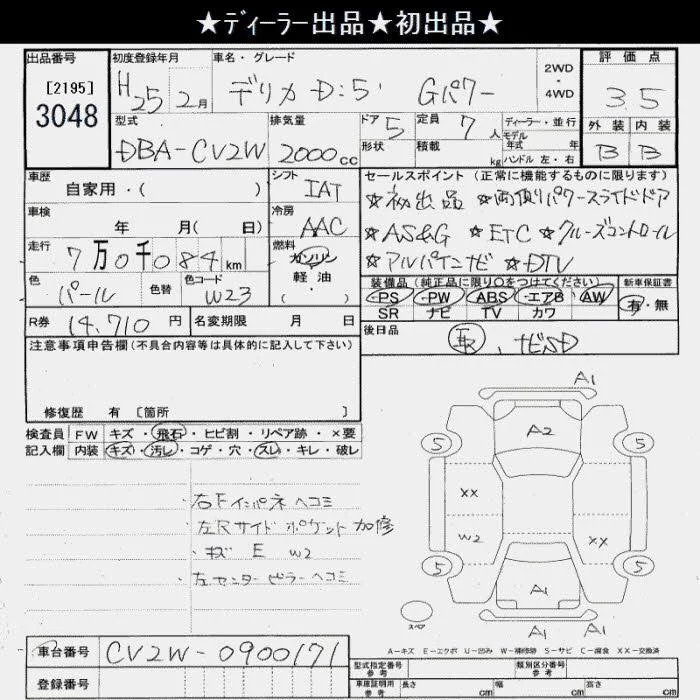 ★ディーラー出品★初出品★
出品番号 初度登録年月 車名・グレード 2WD・4WD 評価点
[2195]
3048
H25 2月 デリカ D:5 Gパワー 3.5
型式 排気量 ドア 5 定員 7人 ディーラー・並行 外装 内装
モデル年式 年
DBA-CV2W 2000cc 形状 積載 kg ハンドル 左・右 B B
車歴 自家用・( ) シフト IAT セールスポイント(正常に機能するものに限ります)
★初出品 ★両側パワースライドドア
車検 年 月( 日) 冷房 AAC
★AS&G ★ETC ★クルーズコントロール
走行 7万0千084km 燃料 ガソリン 軽・油 ( )
★アルパインナビ ★DTV
色 パール 色替 色コード W23
装備品(純正品に限り○をつけてください) 新車保証書
PS・PW・ABS・エアB・AW 有・無
SR ナビ TV カワ
R券 14,710円 名変期限 月 日
後日品 取、ナビSD
注意事項申告欄(不具合内容等は具体的に記入して下さい)
修復歴 有 [箇所 ]
検査員 FW キズ・飛石・ヒビ割・リペア跡・×要
記入欄 内装 キズ・汚レ・コゲ・穴・スレ・キレ・破レ
A1
A2
5 5
XX
W2 XX
5 5
A1
A1 A1
スペア
・右Fインパネ ヘコミ
・左Rサイド ポケット 加修
・キズ E W2
・左センターピラーヘコミ
A-キズ E-エクボ U-凹み W-補修跡 S-サビ C-腐食 XX-交換済
車台番号 CV2W-0900171
型式指定番号 参考 類別区分番号 参考
登録番号
車庫証明用 参考 長さ cm 幅 cm 高さ cm